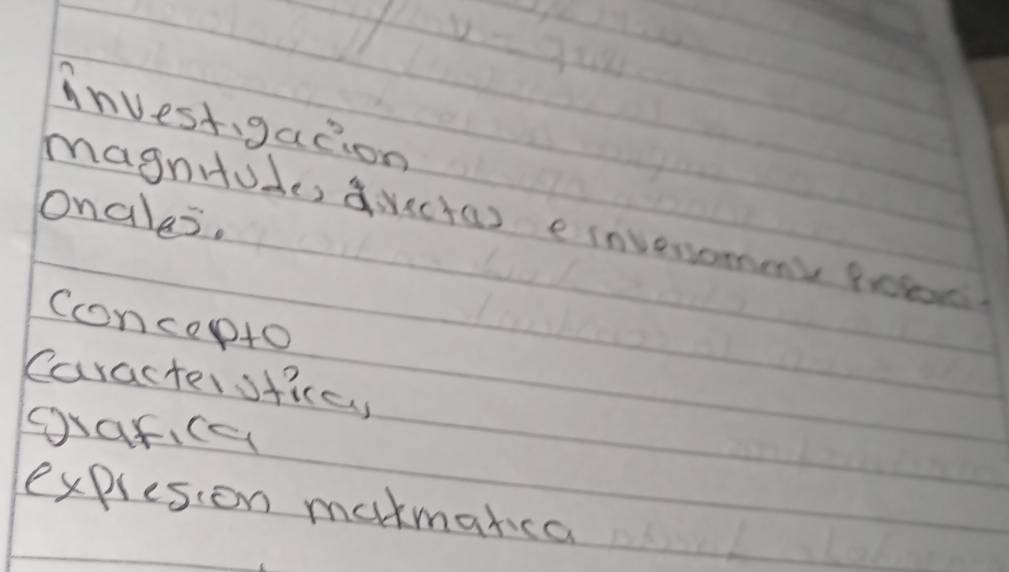 investigación
magnitudes directas e inversamente proporci-
onales.
concepto
características
grafica
expresion matmatica